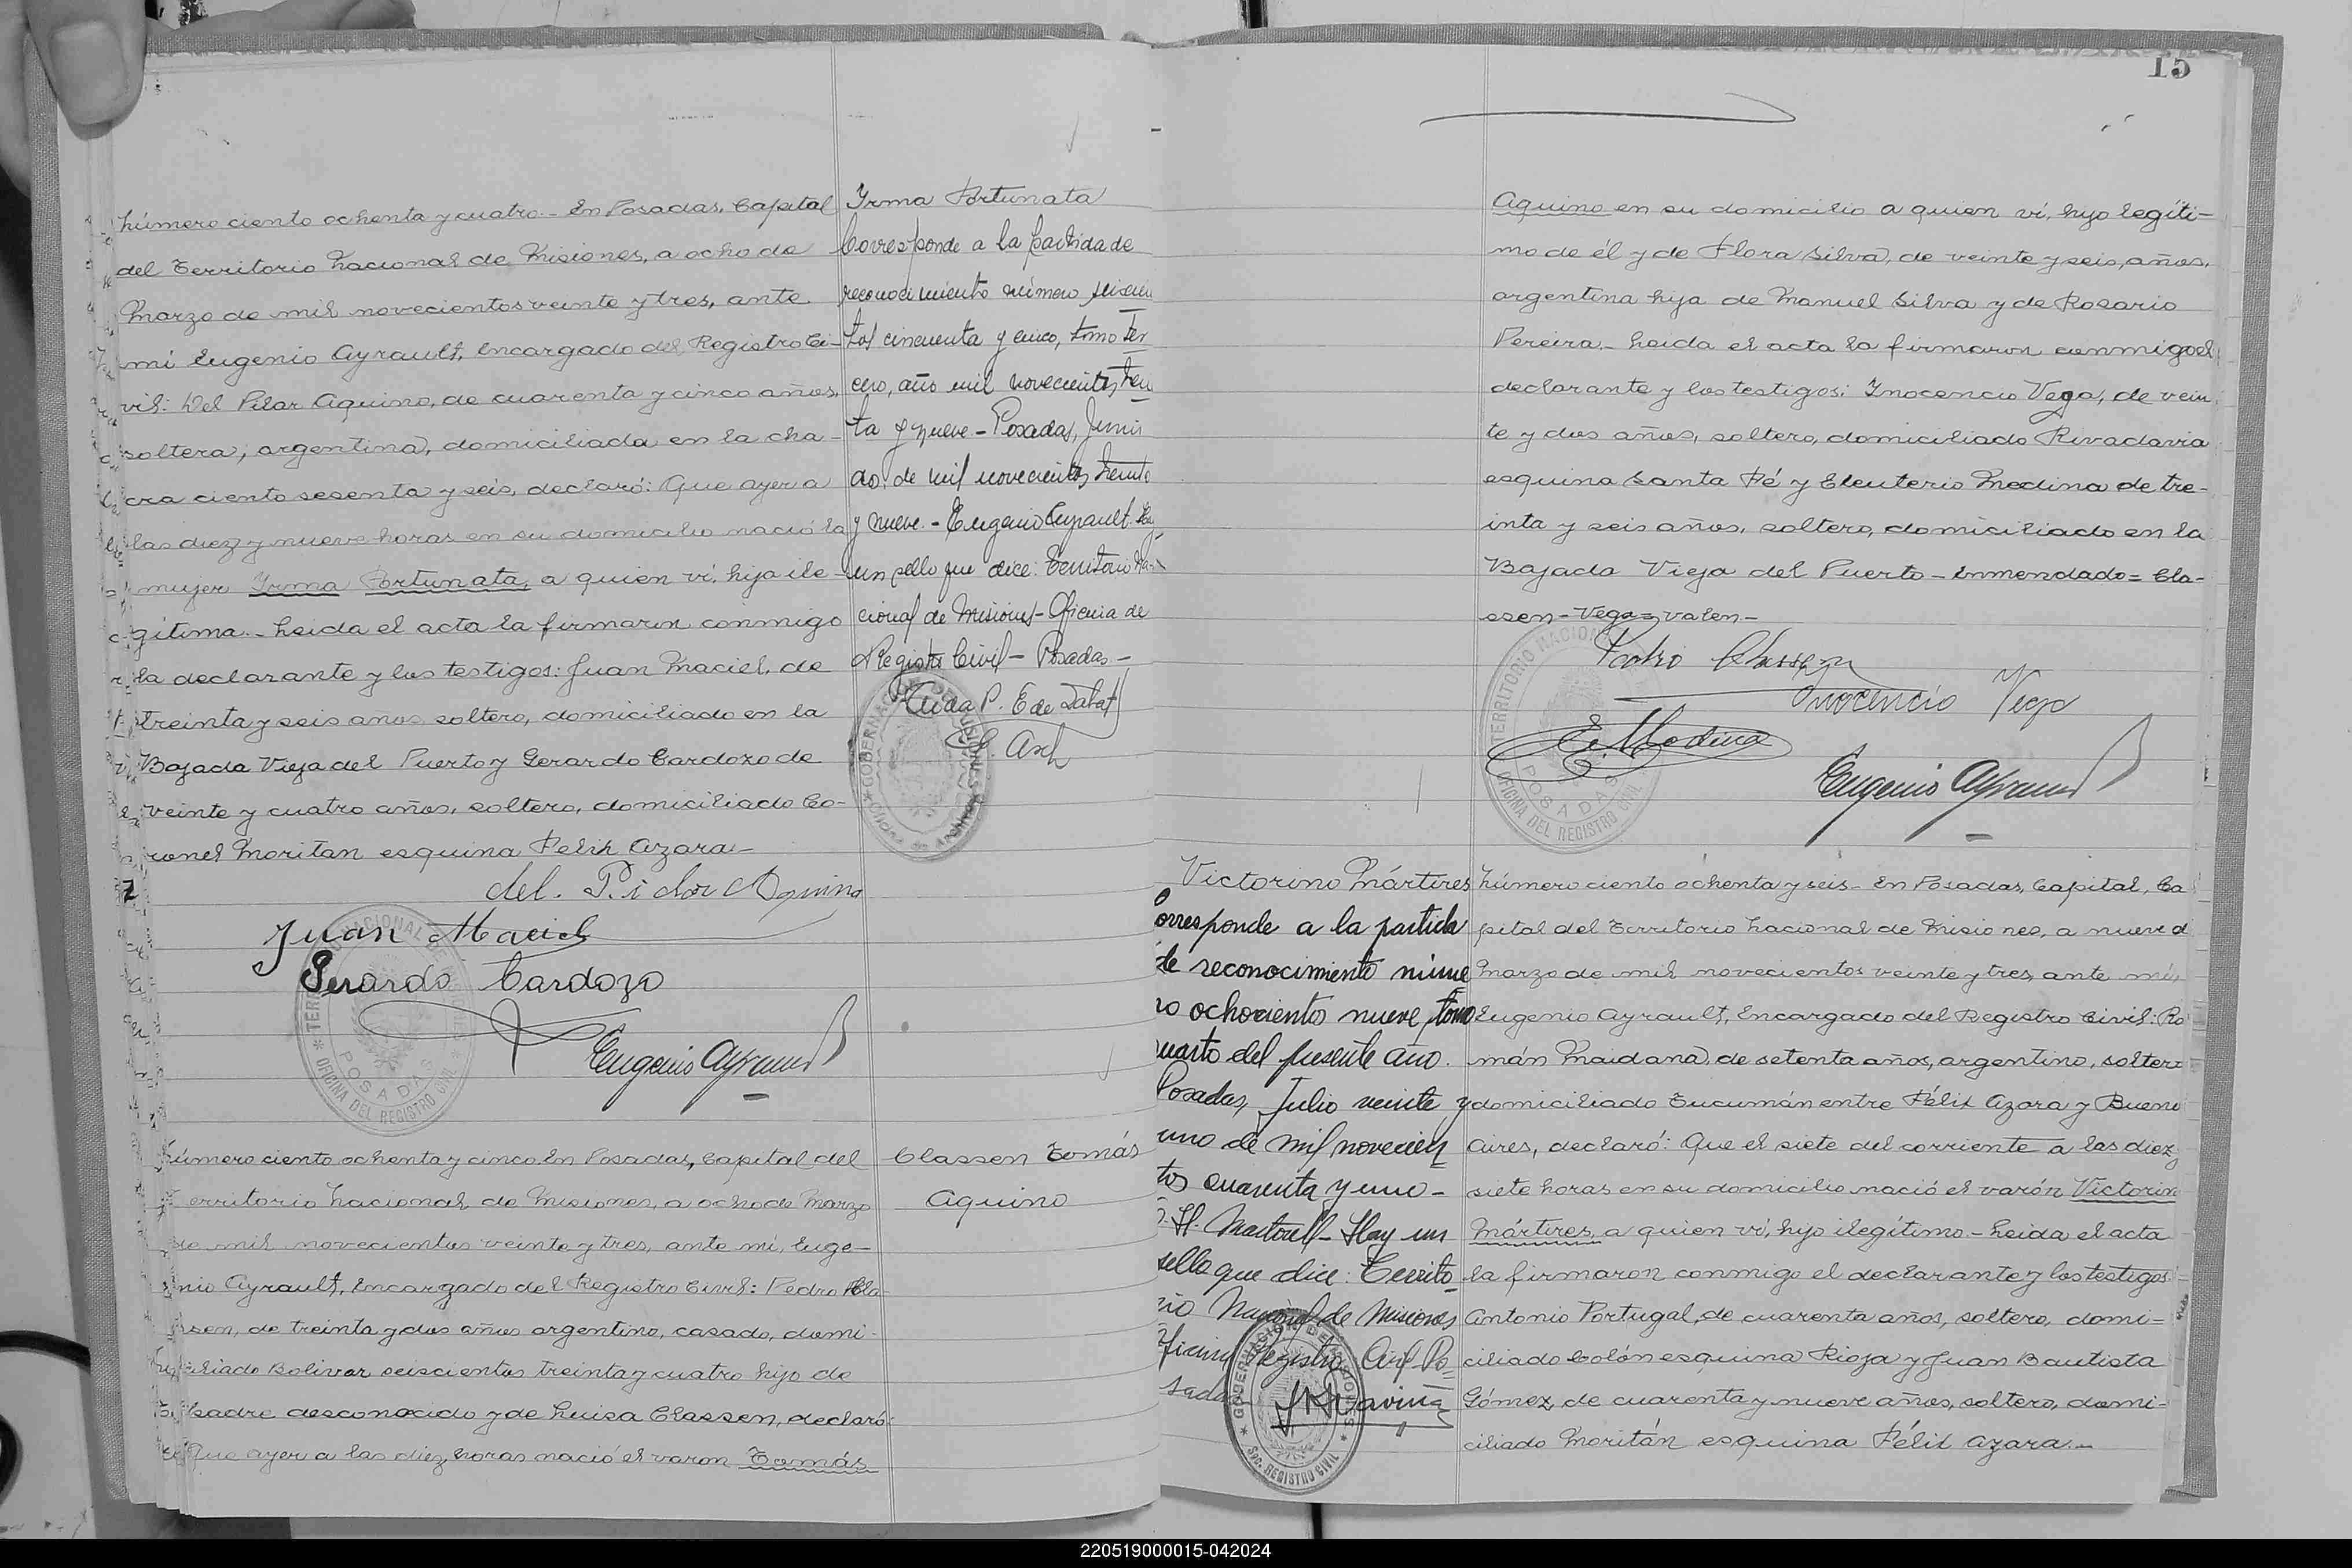 Número ciento ochenta y cuatro.- En Posadas, Capital
del Territorio Nacional de Misiones, a ocho de
Marzo de mil novecientos veinte y tres, ante
mi Eugenio Ayrault, Encargado del Registro Ci-
vil: Del Pilar Aquino, de cuarenta y cinco años,
soltera, argentina, domiciliada en la cha-
cra ciento sesenta y seis, declaró: Que ayer a
las diez y nueve horas en su domicilio nació la
mujer Yrma Fortunata, a quien ví, hija ile-
gítima.- Leida el acta la firmaron conmigo
la declarante y los testigos: Juan Maciel, de
treinta y seis años soltero, domiciliado en la
Bajada Vieja del Puerto y Gerardo Cardozo de
veinte y cuatro años, soltero, domiciliado Co-
ronel Moritan esquina Felix Azara.-
del. Pilar Aquino
Juan Maciel
Gerardo Cardozo
Eugenio Ayrault
TERRITORIO NACIONAL DE MISIONES
POSADAS
OFICINA DEL REGISTRO CIVIL
Yrma Fortunata
Corresponde a la partida de
reconocimiento número seiscien
tos cincuenta y cinco, tomo ter
cero, año mil novecientos trein
ta y nueve - Posadas, Junio
de mil novecientos treinta
y nueve. - Eugenio Ayrault. Hay
un sello que dice: Territorio Na-
cional de Misiones - Oficina de
Registro Civil - Posadas -
GOBERNACION DE MISIONES
Número ciento ochenta y cinco En Posadas, Capital del
Territorio Nacional de Misiones, a ocho de Marzo
de mil novecientos veinte y tres, ante mi, Euge-
nio Ayrault, Encargado del Registro Civil: Pedro Cla-
ssen, de treinta y dos años argentino, casado, domi-
ciliado Bolivar seiscientos treinta y cuatro hijo de
padre desconocido y de Luisa Classen, declaró:
Que ayer a las diez horas nació el varon Tomás
Classen Tomás
Aquino
15
Aquino en su domicilio a quien ví, hijo legíti-
mo de él y de Flora Silva, de veinte y seis años,
argentina hija de Manuel Silva y de Rosario
Pereira.- Leida el acta la firmaron conmigo el
declarante y los testigos: Inocencio Vega, de vein
te y dos años, soltero, domiciliado Rivadavia
esquina Santa Fé y Eleuterio Medina de tre-
inta y seis años, soltero, domiciliado en la
Bajada Vieja del Puerto - Enmendado = Cla-
ssen - Vega = valen -
Pedro Classen
Inocencio Vega
E. Medina
Eugenio Ayrault
TERRITORIO NACIONAL
POSADAS
OFICINA DEL REGISTRO CIVIL
Victorino Mártires
Corresponde a la partida
de reconocimiento núme
ro ochocientos nueve, tomo
cuarto del presente año.
Posadas, Julio veinte y
uno de mil novecien
tos cuarenta y uno -
H. Martorell - Hay un
sello que dice: Territo
rio Nacional de Misiones
Oficina Registro Civil Po
sadas
GOBERNACION DE MISIONES
Sec. REGISTRO CIVIL
Número ciento ochenta y seis - En Posadas, Capital, Ca
pital del Territorio Nacional de Misiones, a nueve d
Marzo de mil novecientos veinte y tres, ante mí,
Eugenio Ayrault, Encargado del Registro Civil: Ro
mán Maidana, de setenta años, argentino, soltero
domiciliado Tucumán entre Félix Azara y Bueno
Aires, declaró: Que el siete del corriente a las diez
siete horas en su domicilio nació el varón Victorin
Mártires, a quien ví, hijo ilegítimo - Leida el acta
la firmaron conmigo el declarante y los testigos:
Antonio Portugal, de cuarenta años, soltero, domi-
ciliado Colón esquina Rioja y Juan Bautista
Gómez, de cuarenta y nueve años, soltero, domi-
ciliado Moritán esquina Félix Azara.-
220519000015-042024